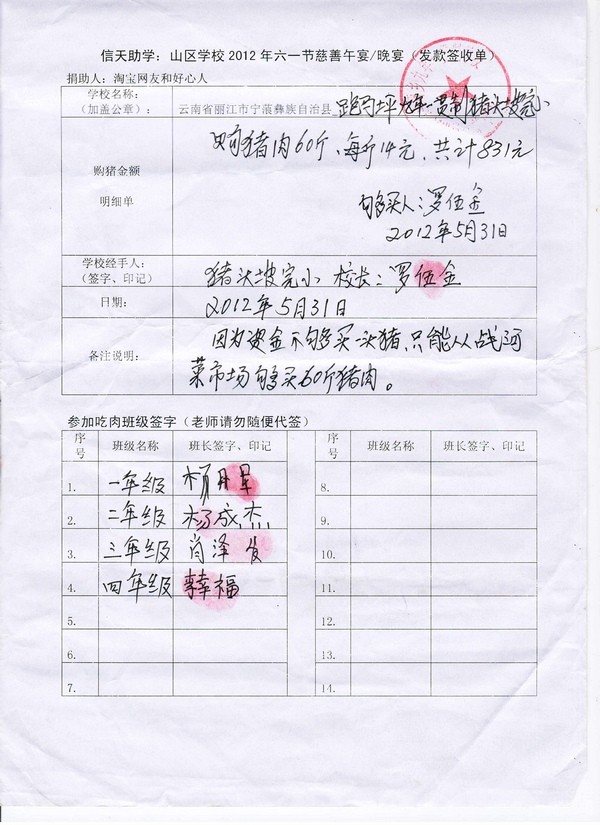 信天助学：山区学校2012年六一节慈善午宴/晚宴（发款签收单）
捐助人：淘宝网友和好心人
学校名称：
（加盖公章）：
云南省丽江市宁蒗彝族自治县 跑马坪九年一贯制猪头坡完小
购猪金额
明细单
购猪肉60斤，每斤14元，共计831元
购买人：罗伍金
2012年5月31日
学校经手人：
（签字、印记）
猪头坡完小 校长：罗伍金
日期：
2012年5月31日
备注说明：
因为资金不够买一头猪，只能从战河
菜市场够买60斤猪肉。
参加吃肉班级签字（老师请勿随便代签）
序号 班级名称 班长签字、印记 序号 班级名称 班长签字、印记
1. 一年级 8.
2. 二年级 杨成杰 9.
3. 三年级 肖泽 10.
4. 四年级 幸福 11.
5. 12.
6. 13.
7. 14.